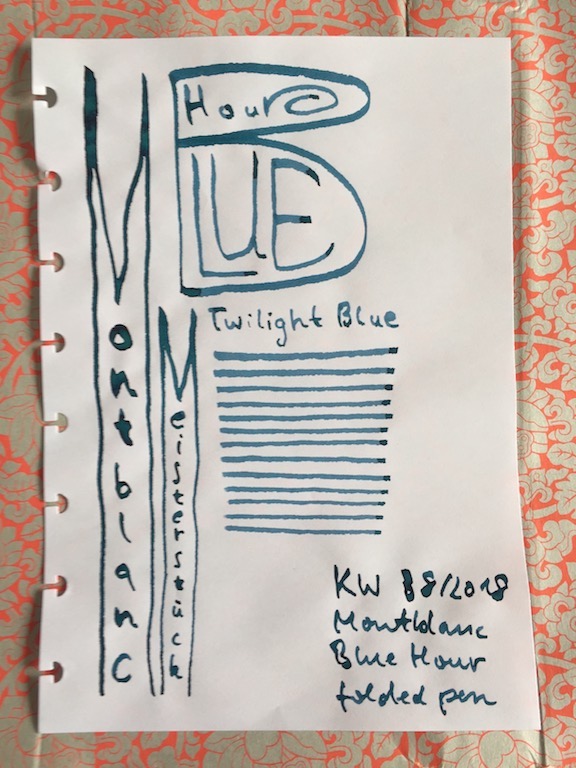 Montblanc
Meisterstück
Blue
Hour
Twilight Blue
KW 38/2018
Montblanc
Blue Hour
folded pen